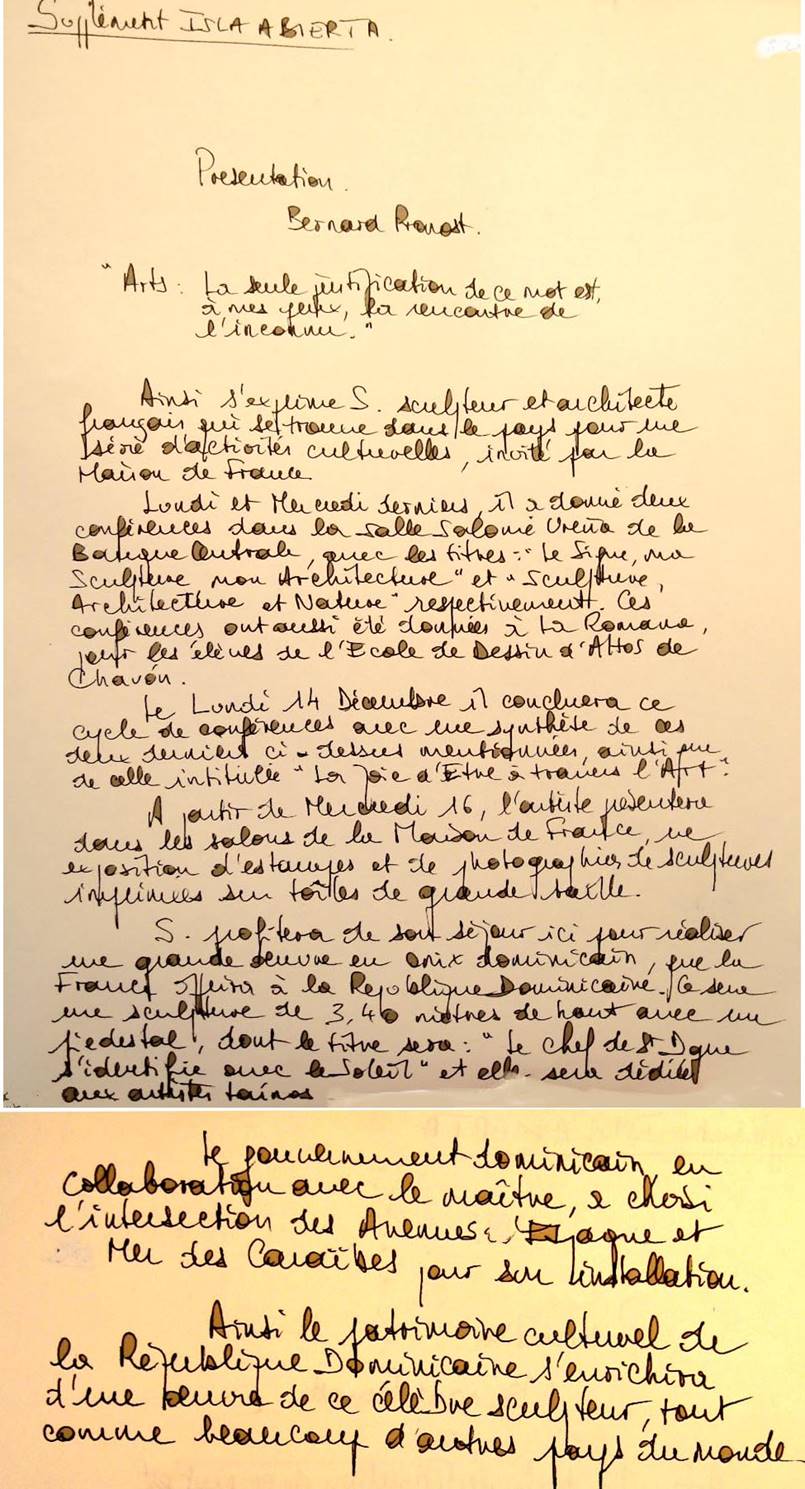 Supplément ISLA ABIERTA.
Presentation.
Bernard Pronost.
"Arts: La seule justification de ce mot est,
à mes yeux, la rencontre de
l'inconnu."
Ainsi s'exprime S. sculpteur et architecte
français qui se trouve dans le pays pour une
série d'activités culturelles, invité par la
Maison de France.
Lundi et Mercredi derniers, il a donné deux
conférences dans la salle Salomé Ureña de la
Banque Centrale, avec les titres: "Le Signe, ma
Sculpture mon Architecture" et "Sculpture,
Architecture et Nature" respectivement. Ces
conférences ont aussi été données à La Romana,
pour les élèves de l'Ecole de Dessin d'Altos de
Chavón.
Le Lundi 14 Décembre il concluera ce
cycle de conférences avec une synthèse de ces
deux derniers ci-dessus mentionnées, ainsi que
de celle intitulée "La Joie d'Etre à travers l'Art".
A partir de Mercredi 16, l'artiste présentera
dans les salons de la Maison de France, une
exposition d'estampes et de photographies de sculptures
imprimées sur toîles de grande taille.
S. profitera de son séjour ici pour réaliser
une grande oeuvre en onix dominicain, que la
France offrira à la République Dominicaine. Ce sera
une sculpture de 3,40 mètres de haut avec un
piedestal, dont le titre sera: "Le Chef de St Dgue
s'identifie avec le Soleil" et elle sera dédiée
aux artistes taínos
Le gouvernement dominicain, en
collaboration avec le maître, a choisi
l'intersection des Avenues: Espagne et
Mer des Caraïbes pour son installation.
Ainsi le patrimoine culturel de
la République Dominicaine s'enrichira
d'une oeuvre de ce célèbre sculpteur, tout
comme beaucoup d'autres pays du monde.